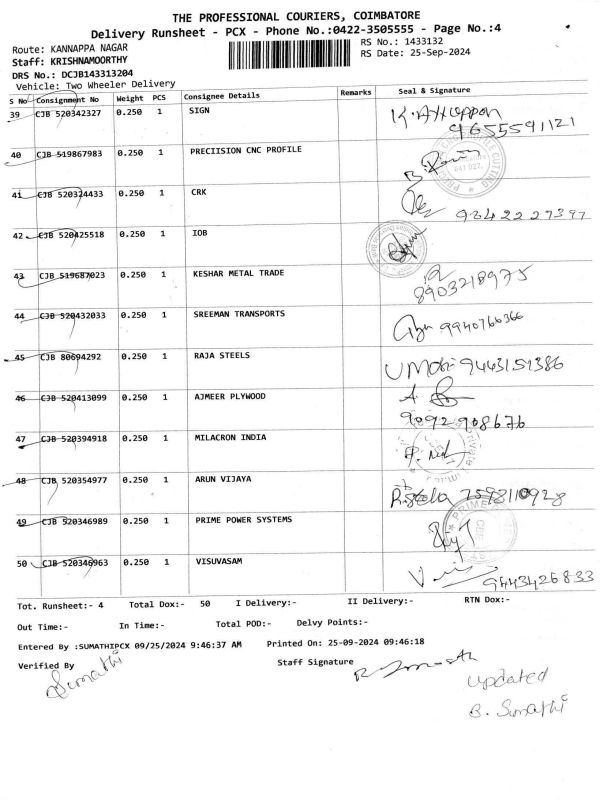 THE PROFESSIONAL COURIERS, COIMBATORE
Delivery Runsheet - PCX - Phone No.:0422-3505555 - Page No.:4
Route: KANNAPPA NAGAR
RS No.: 1433132
Staff: KRISHNAMOORTHY
RS Date: 25-Sep-2024
DRS No.: DCJB143313204
Vehicle: Two Wheeler Delivery
S No Consignment No Weight PCS Consignee Details Remarks Seal & Signature
39 CJB 520342327 0.250 1 SIGN
9655591121
40 CJB 519867983 0.250 1 PRECIISION CNC PROFILE
41 CJB 520324433 0.250 1 CRK
9342227397
42 CJB 520425518 0.250 1 IOB
43 CJB 519687023 0.250 1 KESHAR METAL TRADE
8903218975
44 CJB 520432033 0.250 1 SREEMAN TRANSPORTS
9940766366
45 CJB 80694292 0.250 1 RAJA STEELS
9443151386
46 CJB 520413099 0.250 1 AJMEER PLYWOOD
9092908676
47 CJB 520394918 0.250 1 MILACRON INDIA
48 CJB 520354977 0.250 1 ARUN VIJAYA
49 CJB 520346989 0.250 1 PRIME POWER SYSTEMS
PRIME
50 CJB 520346963 0.250 1 VISUVASAM
9443426833
Tot. Runsheet:- 4 Total Dox:- 50 I Delivery:- II Delivery:- RTN Dox:-
Out Time:- In Time:- Total POD:- Delvy Points:-
Entered By :SUMATHIPCX 09/25/2024 9:46:37 AM Printed On: 25-09-2024 09:46:18
Verified By Staff Signature
Sumathi
updated
B. Sumathi